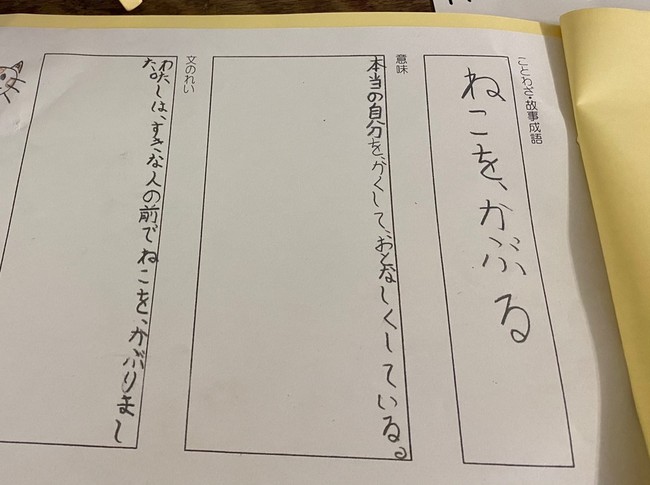 ことわざ・故事成語
ねこを、かぶる
意味
本当の自分を、かくして、おとなしくしている。
文のれい
わたしは、すきな人の前でねこを、かぶりまし
た。